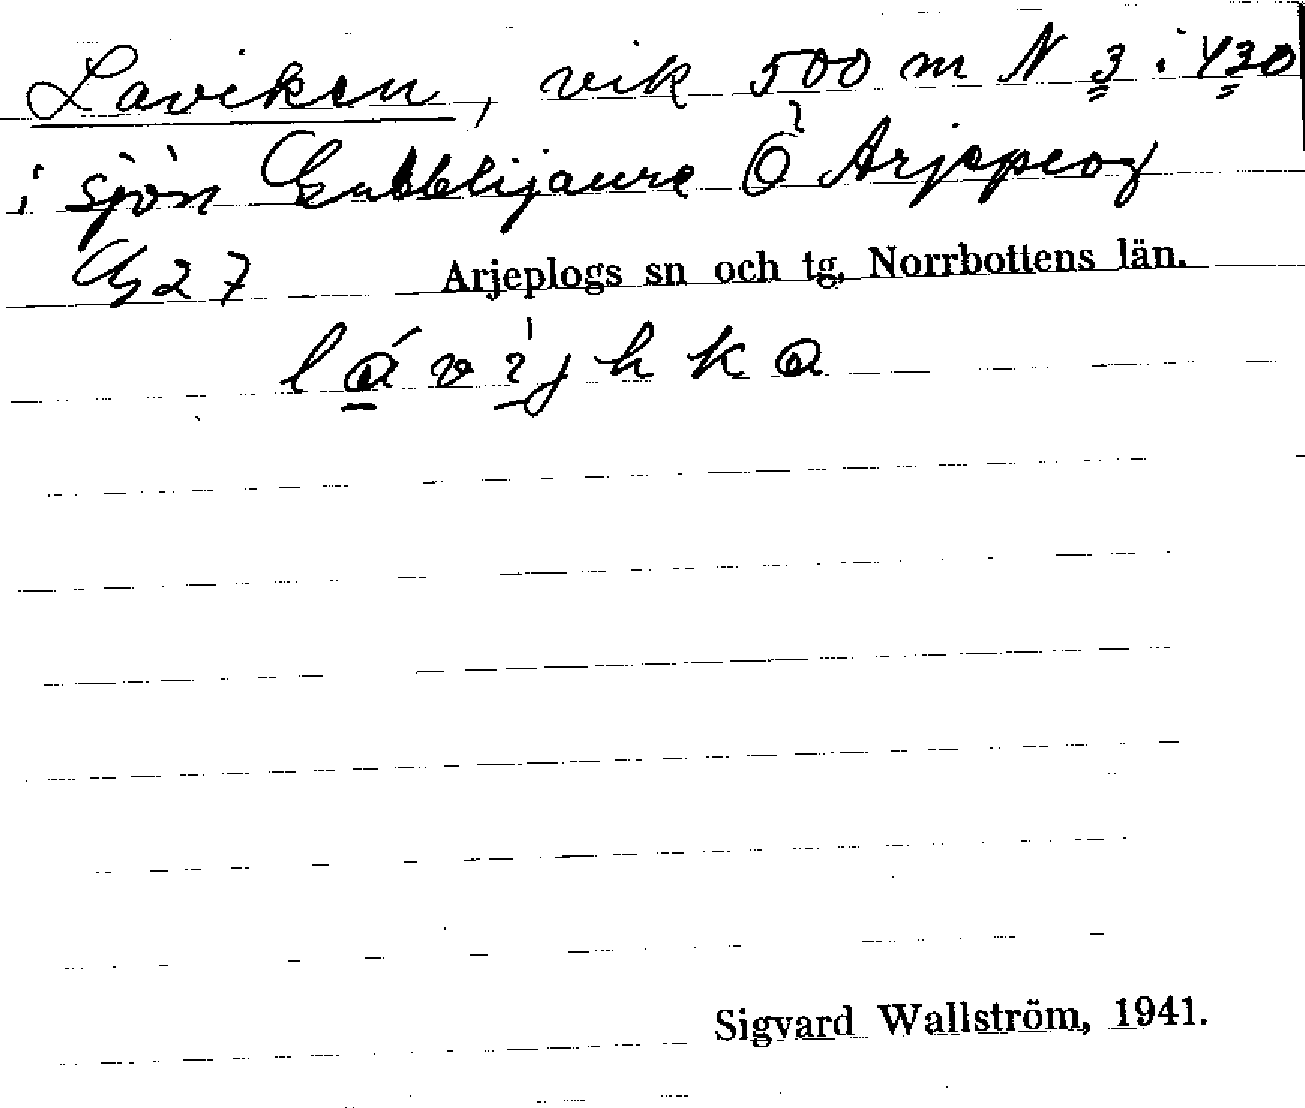 Laviken, vik 500 m N 3 i 430
i sjön Gubblijaure Ö Arjepeog
Gg 27 Arjeplogs sn och tg, Norrbottens län.
lávijhka
Sigvard Wallström, 1941.